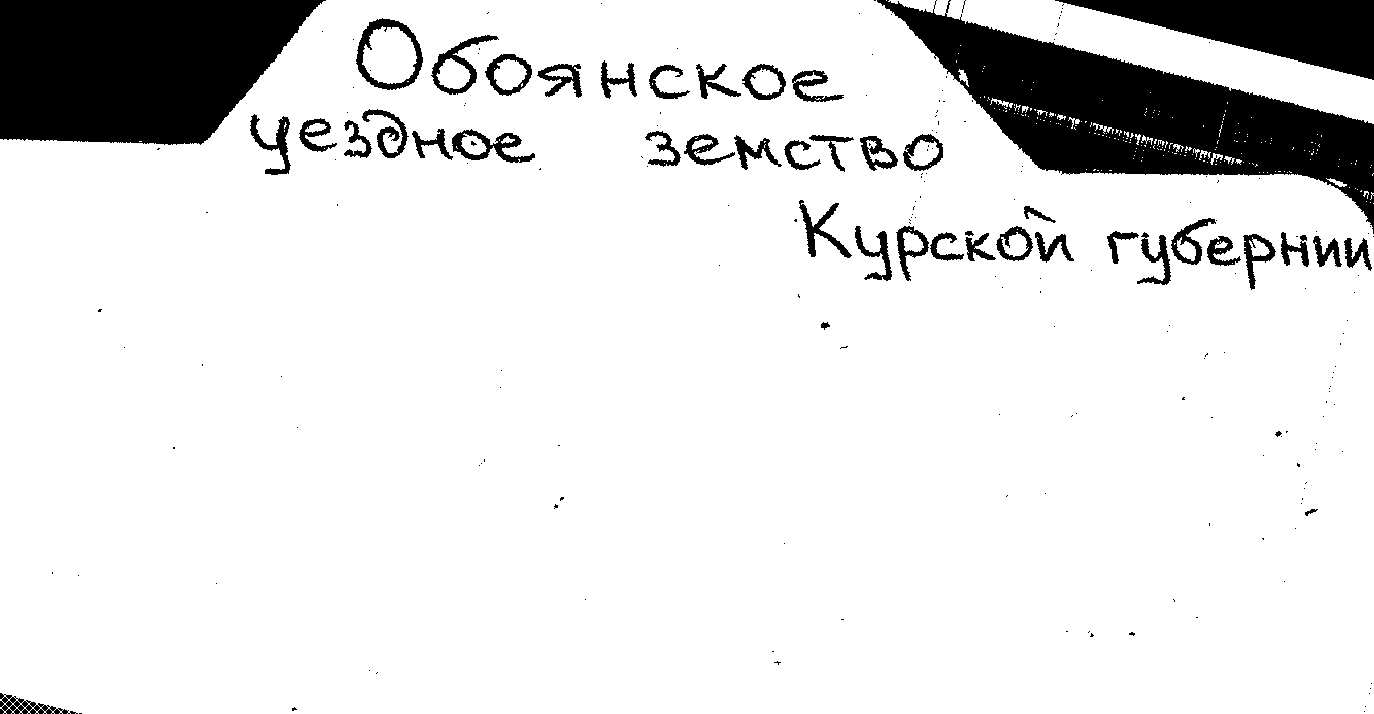 Обоянское
уездное земство
Курской губернии